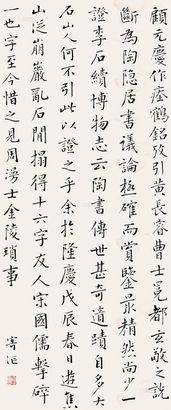 顧元慶作瘞鶴銘攷引黃長睿曹士冕都玄敬之説
斷為陶隱居書議論極確而賞鑒最精然尚少一
證李石續博物志云陶書傳世甚奇遺蹟自多大
石山人何不引此以證之乎余於隆慶戊辰春日遊焦
山從崩巖亂石間搨得十六字友人宋國儒擊碎
一也字至今惜之見周溪士金陵瑣事